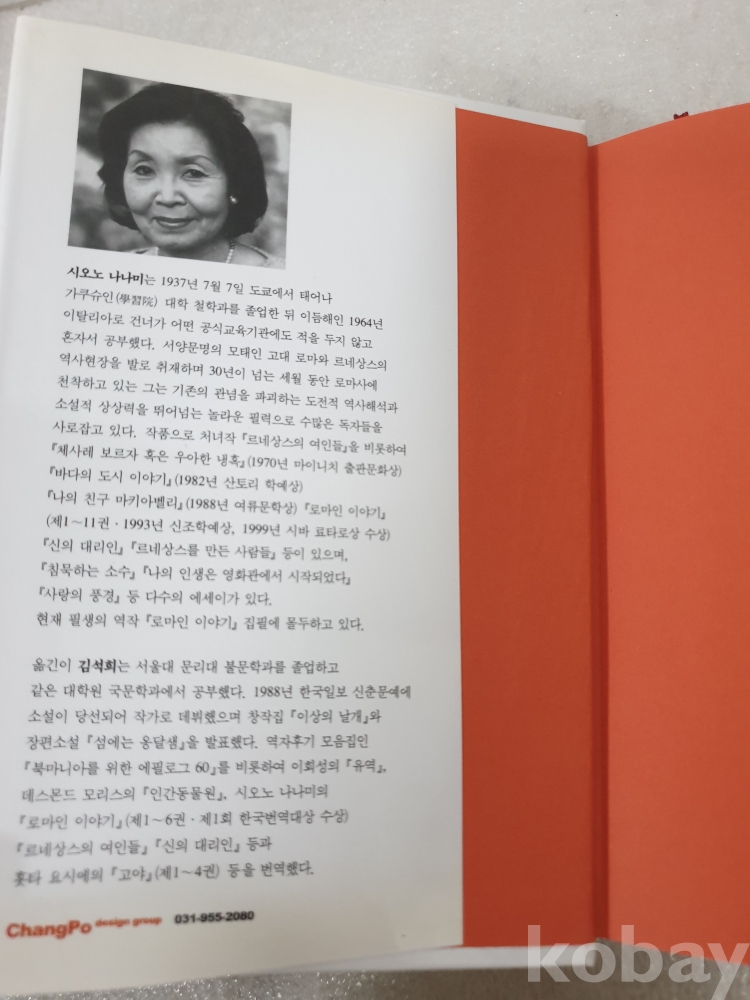 시오노 나나미는 1937년 7월 7일 도쿄에서 태어나
가쿠슈인(學習院) 대학 철학과를 졸업한 뒤 이듬해인 1964년
이탈리아로 건너가 어떤 공식교육기관에도 적을 두지 않고
혼자서 공부했다. 서양문명의 모태인 고대 로마와 르네상스의
역사현장을 발로 취재하며 30년이 넘는 세월 동안 로마사에
천착하고 있는 그는 기존의 관념을 파괴하는 도전적 역사해석과
소설적 상상력을 뛰어넘는 놀라운 필력으로 수많은 독자들을
사로잡고 있다. 작품으로 처녀작 『르네상스의 여인들』을 비롯하여
『체사레 보르자 혹은 우아한 냉혹』(1970년 마이니치 출판문화상)
『바다의 도시 이야기』(1982년 산토리 학예상)
『나의 친구 마키아벨리』(1988년 여류문학상) 『로마인 이야기』
(제1~11권·1993년 신조학예상, 1999년 시바 료타로상 수상)
『신의 대리인』 『르네상스를 만든 사람들』 등이 있으며,
『침묵하는 소수』 『나의 인생은 영화관에서 시작되었다』
『사랑의 풍경』 등 다수의 에세이가 있다.
현재 필생의 역작 『로마인 이야기』 집필에 몰두하고 있다.
옮긴이 김석희는 서울대 문리대 불문학과를 졸업하고
같은 대학원 국문학과에서 공부했다. 1988년 한국일보 신춘문예에
소설이 당선되어 작가로 데뷔했으며 창작집 『이상의 날개』와
장편소설 『섬에는 옹달샘』을 발표했다. 역자후기 모음집인
『북마니아를 위한 에필로그 60』를 비롯하여 이회성의 『유역』,
데스몬드 모리스의 『인간동물원』, 시오노 나나미의
『로마인 이야기』(제1~6권·제1회 한국번역대상 수상)
『르네상스의 여인들』 『신의 대리인』 등과
홋타 요시에의 『고야』(제1~4권) 등을 번역했다.
ChangPo design group 031-955-2080
kobay